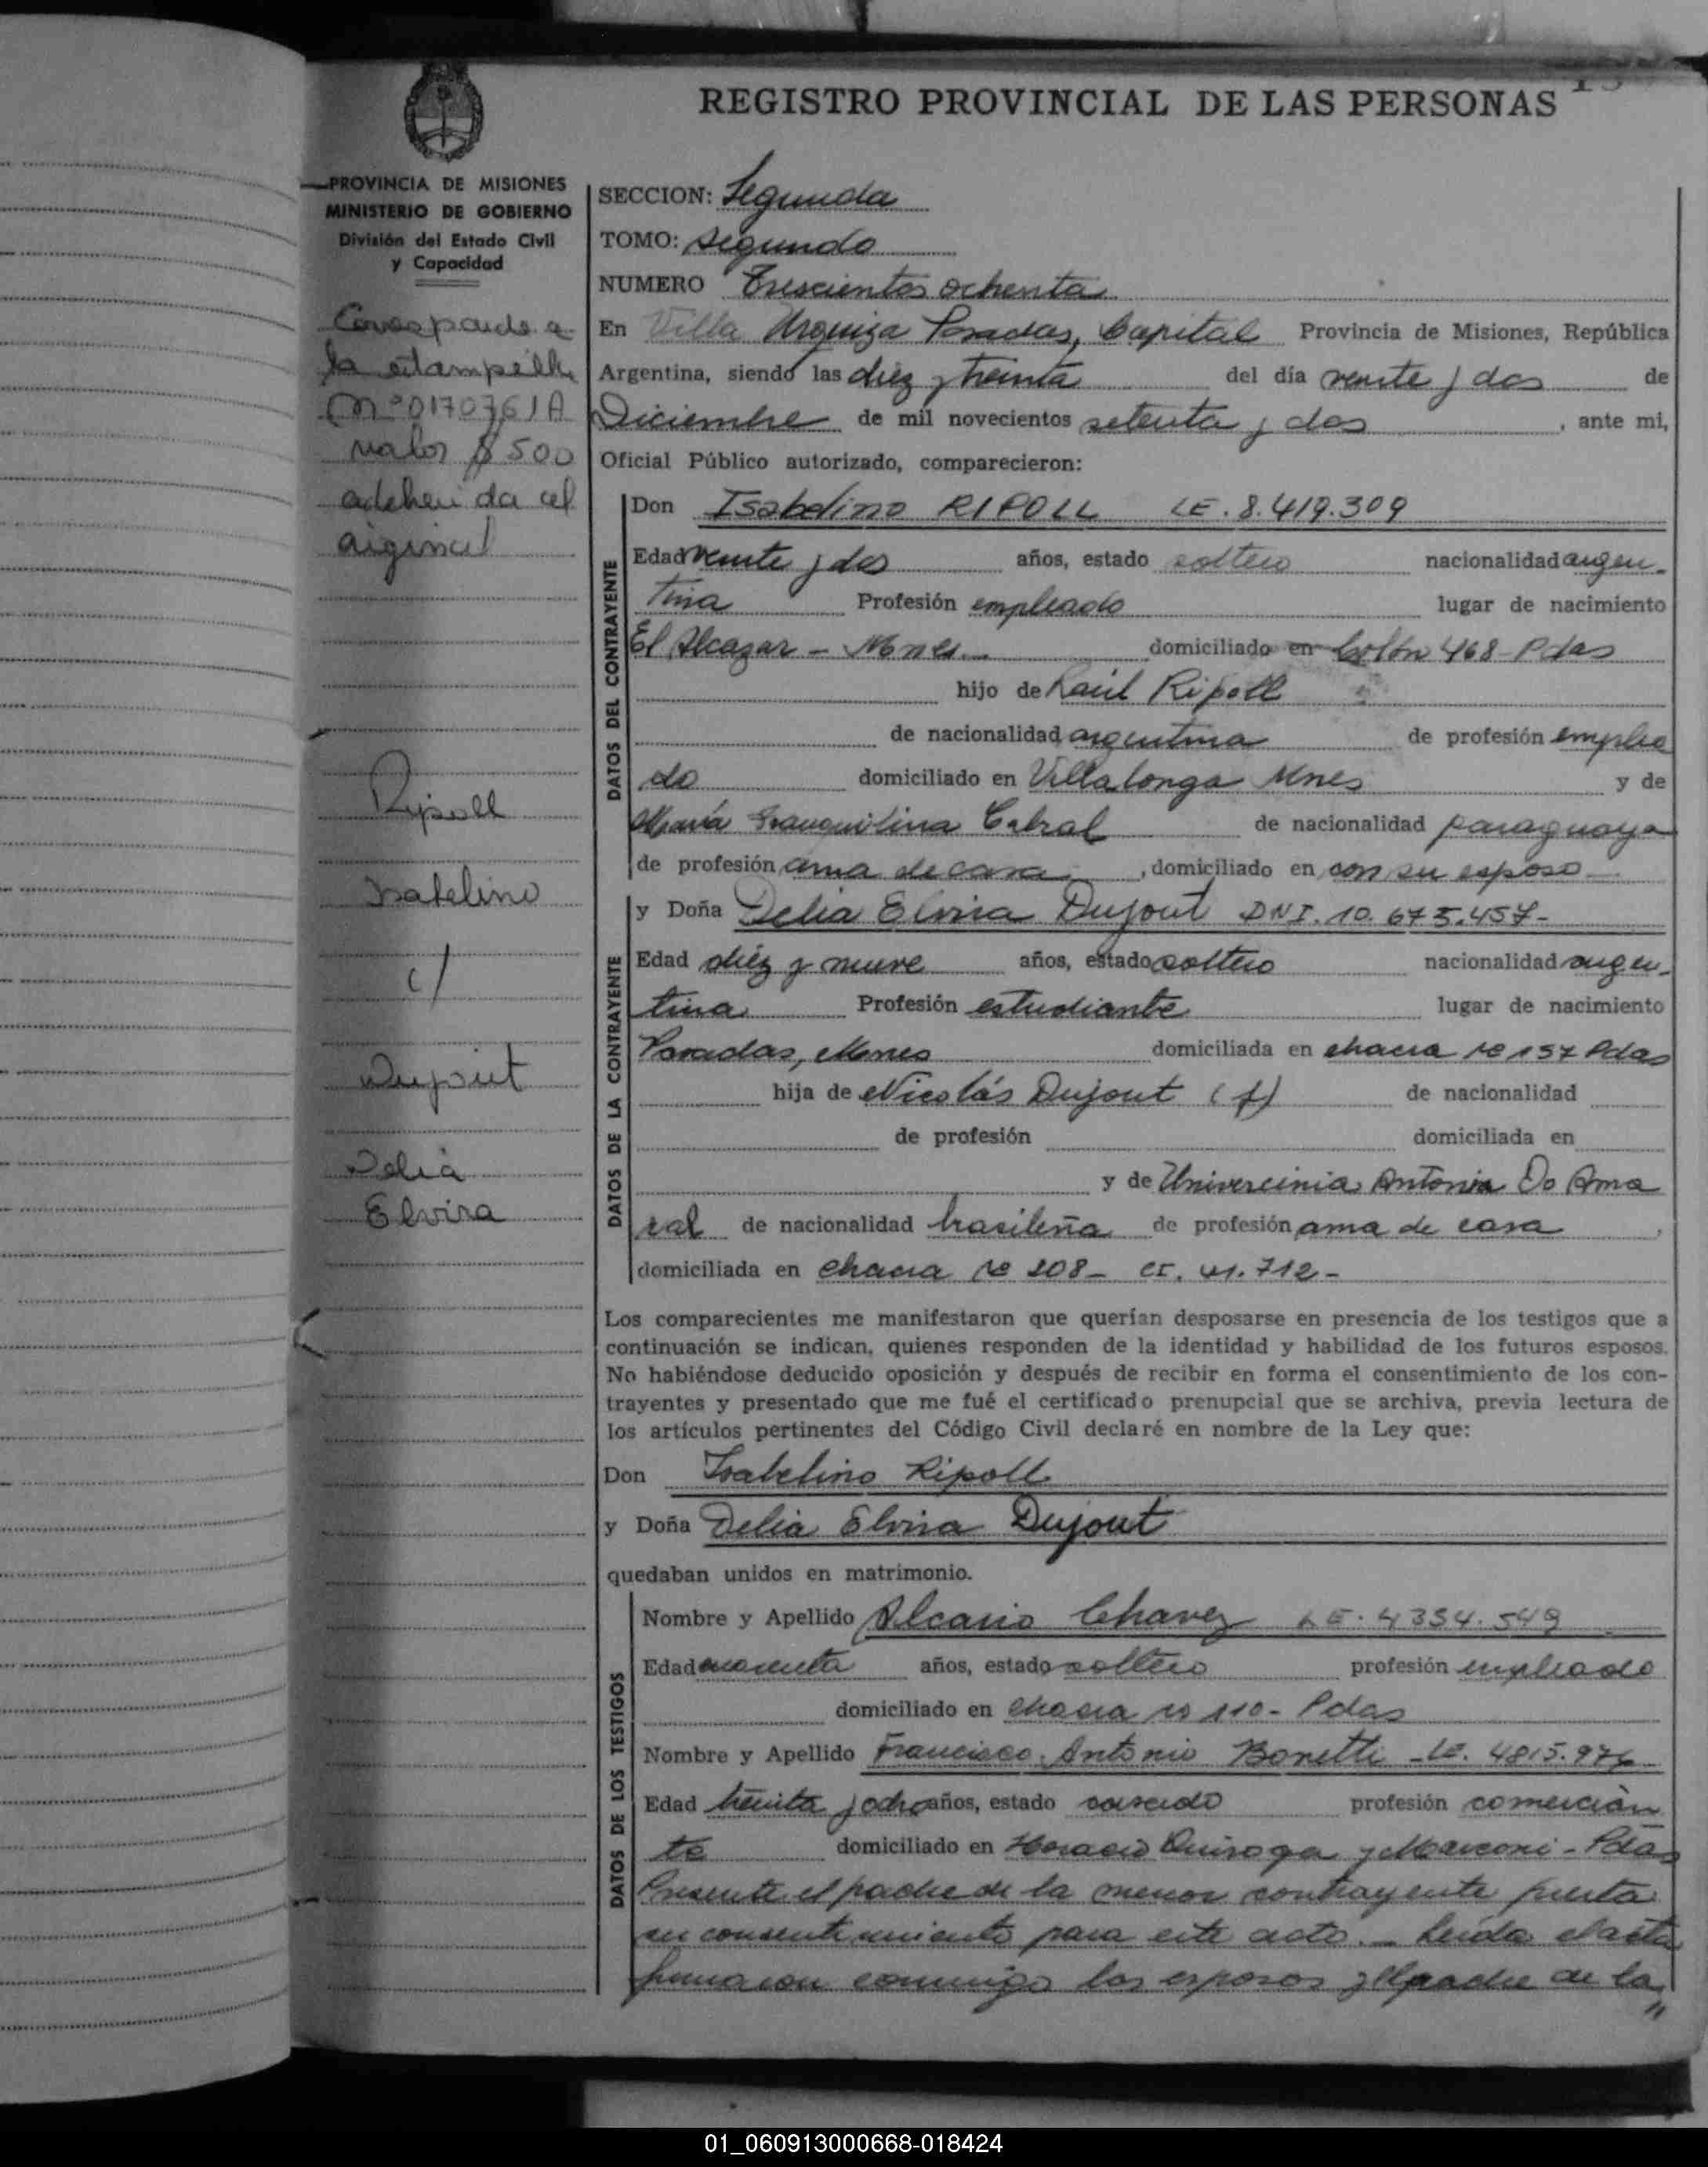 REGISTRO PROVINCIAL DE LAS PERSONAS
PROVINCIA DE MISIONES
MINISTERIO DE GOBIERNO
División del Estado Civil
y Capacidad
Corresponde a
la estampilla
Nº 0170761A
valor $ 500
adherida al
original
Ripoll
Isabelino
c/
Dujout
Delia
Elvira
SECCION: Segunda
TOMO: Segundo
NUMERO Trescientos ochenta
En Villa Urquiza Posadas, Capital Provincia de Misiones, República
Argentina, siendo las diez y treinta del día veinte y dos de
Diciembre de mil novecientos setenta y dos, ante mi,
Oficial Público autorizado, comparecieron:
DATOS DEL CONTRAYENTE
Don Isabelino RIPOLL LE. 8.419.309
Edad veinte y dos años, estado soltero nacionalidad argen-
tina Profesión empleado lugar de nacimiento
El Alcazar - Mnes. domiciliado en Colón 468 Pdas
hijo de Raúl Ripoll
de nacionalidad argentina de profesión emplea
do domiciliado en Villalonga Mnes y de
María Tranquilina Cabral de nacionalidad paraguaya
de profesión ama de casa, domiciliado en con su esposo
DATOS DE LA CONTRAYENTE
y Doña Delia Elvira Dujout DNI. 10.675.457-
Edad diéz y nueve años, estado soltero nacionalidad argen-
tina Profesión estudiante lugar de nacimiento
Posadas, Mnes domiciliada en chacra Nº 157 Pdas
hija de Nicolás Dujout (f) de nacionalidad
de profesión domiciliada en
y de Univercinia Antonia Do Ama
ral de nacionalidad brasileña de profesión ama de casa,
domiciliada en chacra Nº 208- CI. 41.712-
Los comparecientes me manifestaron que querían desposarse en presencia de los testigos que a
continuación se indican, quienes responden de la identidad y habilidad de los futuros esposos.
No habiéndose deducido oposición y después de recibir en forma el consentimiento de los con-
trayentes y presentado que me fué el certificado prenupcial que se archiva, previa lectura de
los artículos pertinentes del Código Civil declaré en nombre de la Ley que:
Don Isabelino Ripoll
y Doña Delia Elvira Dujout
quedaban unidos en matrimonio.
DATOS DE LOS TESTIGOS
Nombre y Apellido Alcario Chavez LE. 4354.549
Edad cuarenta años, estado soltero profesión empleado
domiciliado en chacra Nº 110- Pdas
Nombre y Apellido Francisco Antonio Bonetti LE. 4815.976
Edad treinta y ocho años, estado casado profesión comercian
te domiciliado en Horacio Quiroga y Marconi - Pdas
Presente el padre de la menor contrayente presta
su consentimiento para este acto. - Leída el acta
firmaron conmigo los esposos y el padre de la
"
01_060913000668-018424